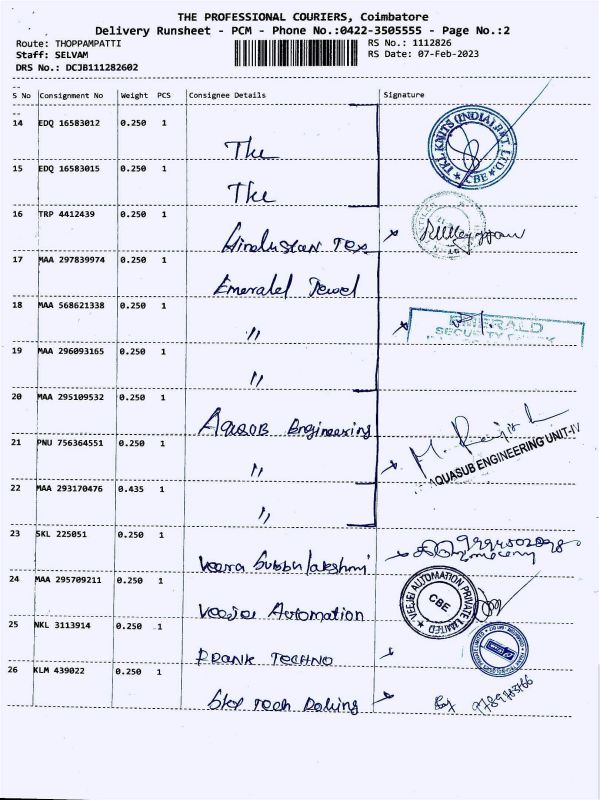 THE PROFESSIONAL COURIERS, Coimbatore
Delivery Runsheet - PCM - Phone No.:0422-3505555 - Page No.:2
Route: THOPPAMPATTI RS No.: 1112826
Staff: SELVAM RS Date: 07-Feb-2023
DRS No.: DCJB111282602
S No Consignment No Weight PCS Consignee Details Signature
14 EDQ 16583012 0.250 1
The
TKL KNITS (INDIA) PVT. LTD. CBE
15 EDQ 16583015 0.250 1
The
16 TRP 4412439 0.250 1
Hindustan Tex
17 MAA 297839974 0.250 1
Emerald Jewel
18 MAA 568621338 0.250 1
"
EMERALD
SECURITY CHECK
19 MAA 296093165 0.250 1
"
20 MAA 295109532 0.250 1
Aquasub Engineering
21 PNU 756364551 0.250 1
"
AQUASUB ENGINEERING UNIT-IV
22 MAA 293170476 0.435 1
"
23 SKL 225051 0.250 1
Veera Subbulakshmi
24 MAA 295709211 0.250 1
Veejei Automation
VEEJEI AUTOMATION PRIVATE LIMITED CBE
25 NKL 3113914 0.250 1
PRANK TECHNO
26 KLM 439022 0.250 1
Sky Tech